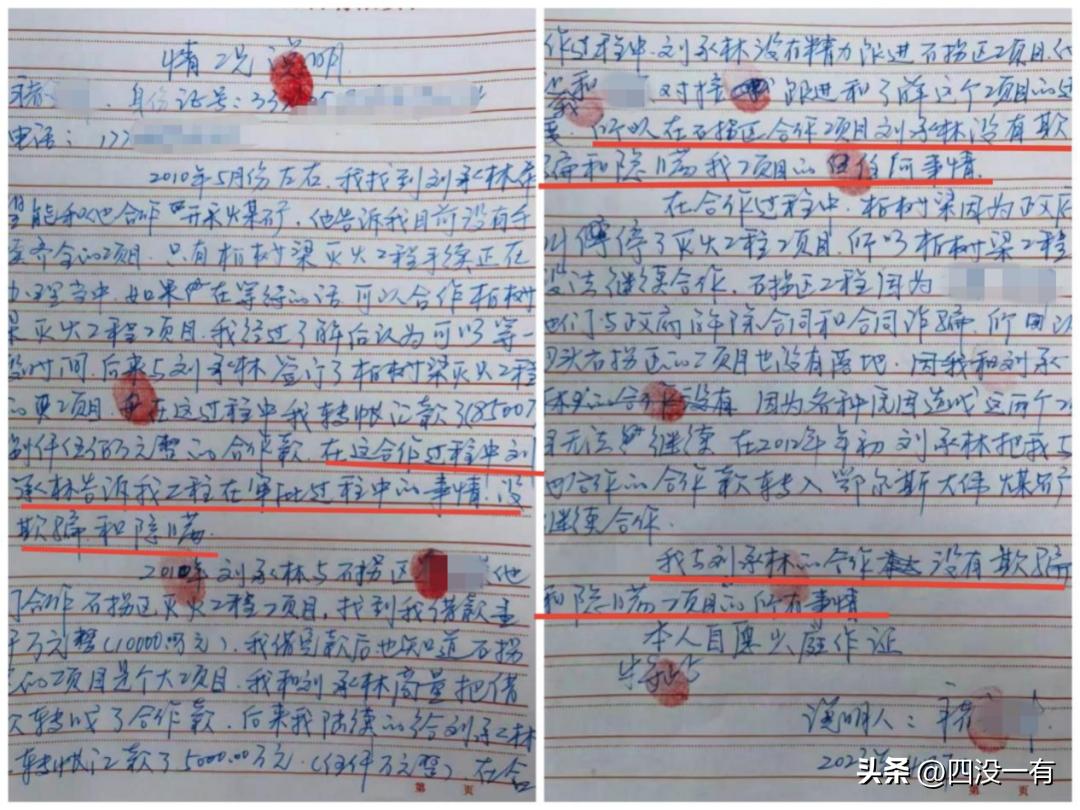 情况说明
身份证号:33
电话:177
2010年5月份左右,我找到刘承林希
望能和他合作开采煤矿,他告诉我目前没有手
续齐全的项目,只有柏树梁灭火工程手续正在
办理当中,如果在等得的话可以合作柏树
梁灭火工程项目,我经过了解后认为可以等一
段时间,后来与刘承林签订了柏树梁灭火工程
的项目,在这过程中我转帐汇款了(8500万
捌仟伍佰万元整的合作款,在这合作过程中刘
承林告诉我工程在审批过程中的事情,没
欺骗和隐瞒
2010年刘承林与石拐区 他
们合作石拐区灭火工程项目,找到我借款壹
千万整(1000.00万元),我借完款后也知道石拐
的项目是个大项目,我和刘承林商量把借
款转成了合作款,后来我陆续的给刘承林
转帐汇款了5000.00万元(伍仟万元整),在合
作过程中,刘承林没有精力跟进石拐区项目,他
和 对接 跟进和了解这个项目的进
度,所以在石拐区合作项目刘承林没有欺
骗和隐瞒我项目的任何事情,
在合作过程中,柏树梁因为政府
叫停了灭火工程项目,所以柏树梁工程
没法继续合作,石拐区工程因为
他们与政府解除合同和合同诈骗,所以
石拐区的项目也没有落地,因我和刘承
林的合作没有 因为各种原因造成这两个项
目无法继续 在2012年年初刘承林把我与
他合作的合作款转入鄂尔斯大伟煤矿
继续合作,
我与刘承林的合作 没有欺骗
和隐瞒项目的所有事情
本人自愿出庭作证
说明人:
202
第 页
头条 @四没一有